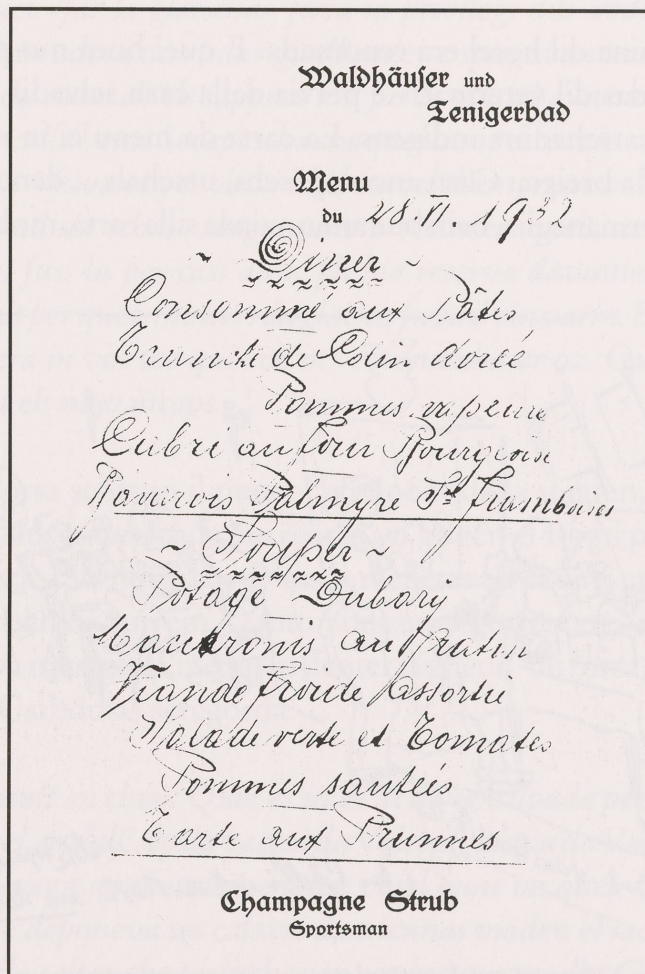 Waldhäuser und
Tenigerbad
Menu
du 28.VI.1932
~ Diner ~
Consommé aux Pâtes
Tranche de Colin dorée
Pommes vapeurs
au four Bourgeoise
Bavarois Palmyre Sce framboises
~ Souper ~
Potage Dubary
Maccaronis au gratin
Viande froide assortie
Salade verte et Tomates
Pommes sautées
Tarte aux Prunnes
Champagne Strub
Sportsman